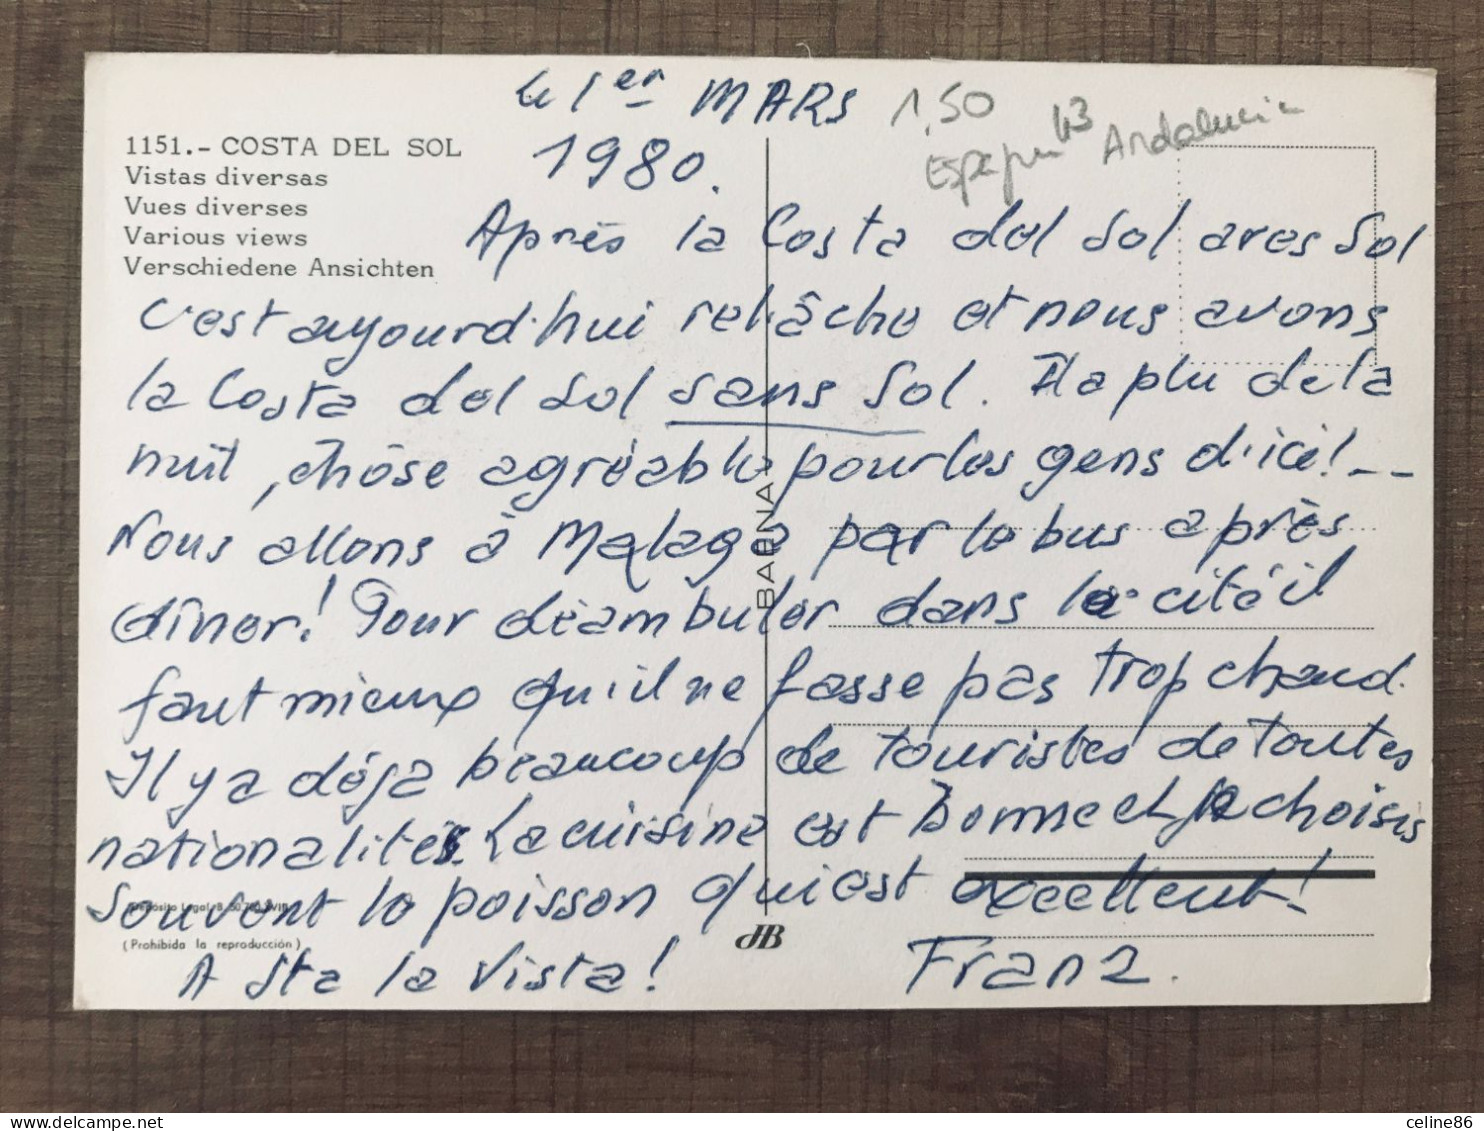 le 1er MARS
1980.
1,50
43 Andalucia
1151.- COSTA DEL SOL
Vistas diversas
Vues diverses
Various views
Verschiedene Ansichten
Après la Costa del Sol aves Sol
c'est aujourd'hui relâche et nous avons
la Costa del Sol sans Sol. Il a plu de la
nuit, chose agréable pour les gens d'ici!--
Nous allons à Malaga par le bus après
dîner! Pour déambuler dans la cité il
faut mieux qu'il ne fasse pas trop chaud.
Il y a déja beaucoup de touristes de toutes
nationalités. La cuisine est Bonne et je choisis
souvent le poisson qui est excellent!
A Sta la Vista! Franz.
BARNA
Depósito Legal B.
(Prohibida la reproducción)
JB
delcampe.net
celine86